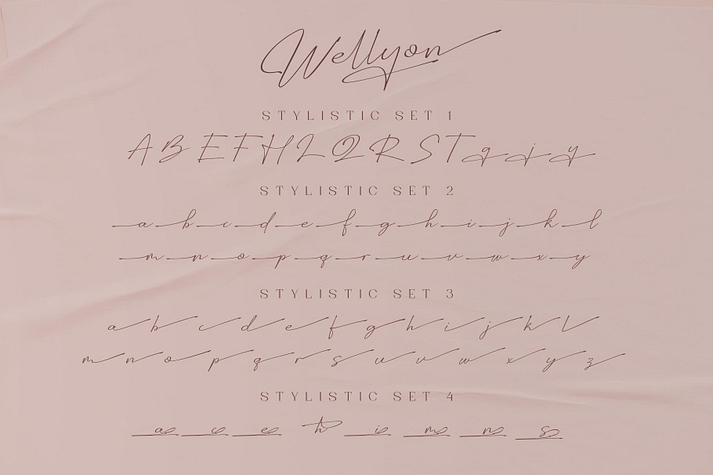 Wellyon
STYLISTIC SET 1
A B E F H L Q R S T g j y
STYLISTIC SET 2
a b c d e f g h i j k l
m n o p q r u v w x y
STYLISTIC SET 3
a b c d e f g h i j k l
m n o p q r s u v w x y z
STYLISTIC SET 4
a c e th i m n s